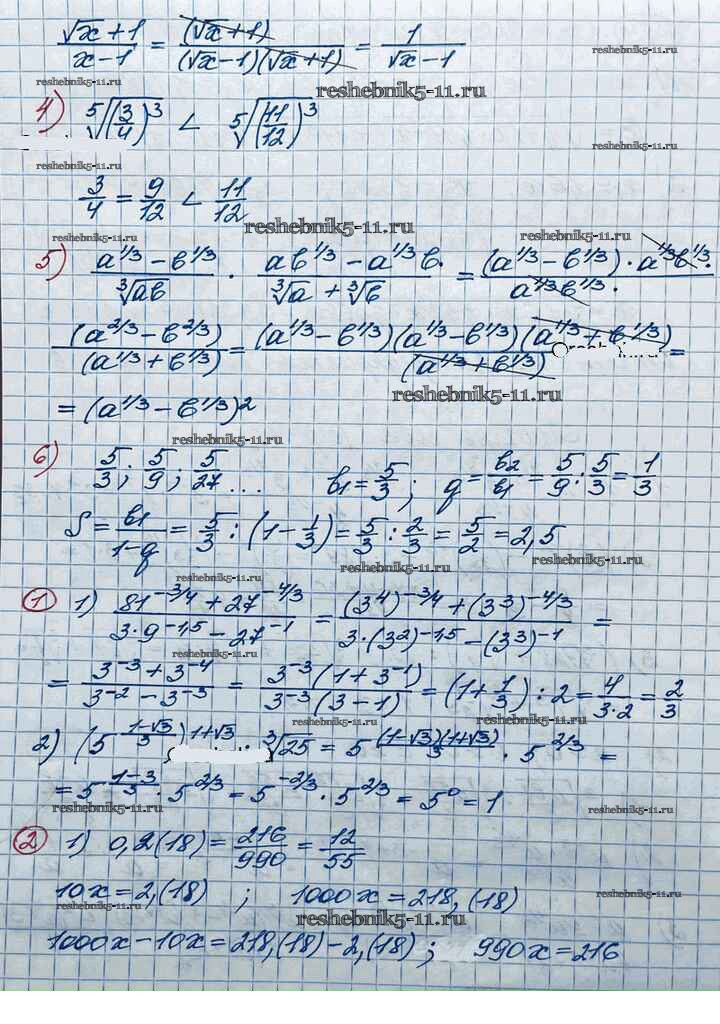 (√x + 1)/(x − 1) = (√x + 1)/((√x − 1)(√x + 1)) = 1/(√x − 1)
reshebnik5-11.ru
reshebnik5-11.ru
4) ⁵√(3/4)³ < ⁵√(11/12)³
reshebnik5-11.ru
reshebnik5-11.ru
3/4 = 9/12 < 11/12
reshebnik5-11.ru
reshebnik5-11.ru
5) (a^1/3 − b^1/3)/∛ab · (ab^1/3 − a^1/3 b)/(∛a + ∛b) = (a^1/3 − b^1/3) · a^1/3 b^1/3 · / a^1/3 b^1/3 ·
(a^2/3 − b^2/3)/(a^1/3 + b^1/3) = (a^1/3 − b^1/3)(a^1/3 − b^1/3)(a^1/3 + b^1/3)/(a^1/3 + b^1/3) =
reshebnik5-11.ru
= (a^1/3 − b^1/3)²
reshebnik5-11.ru
6) 5/3; 5/9; 5/27 ... b1 = 5/3; q = b2/b1 = 5/9 : 5/3 = 1/3
S = b1/(1−q) = 5/3 : (1 − 1/3) = 5/3 : 2/3 = 5/2 = 2,5
reshebnik5-11.ru
reshebnik5-11.ru
① 1) (81^−3/4 + 27^−4/3)/(3·9^−1,5 − 27^−1) = ((3^4)^−3/4 + (3^3)^−4/3)/(3·(3^2)^−1,5 − (3^3)^−1) =
reshebnik5-11.ru
= (3^−3 + 3^−4)/(3^−2 − 3^−3) = 3^−3(1 + 3^−1)/3^−3(3 − 1) = (1 + 1/3) : 2 = 4/(3·2) = 2/3
reshebnik5-11.ru
2) (5^(1−√3)/3)^1+√3 ∛25 = 5^(1−√3)(1+√3)/3 · 5^2/3 =
= 5^(1−3)/3 · 5^2/3 = 5^−2/3 · 5^2/3 = 5^0 = 1
reshebnik5-11.ru
reshebnik5-11.ru
② 1) 0,2(18) = 216/990 = 12/55
10x = 2,(18) ; 1000x = 218,(18)
reshebnik5-11.ru
reshebnik5-11.ru
reshebnik5-11.ru
1000x − 10x = 218,(18) − 2,(18) ; 990x = 216